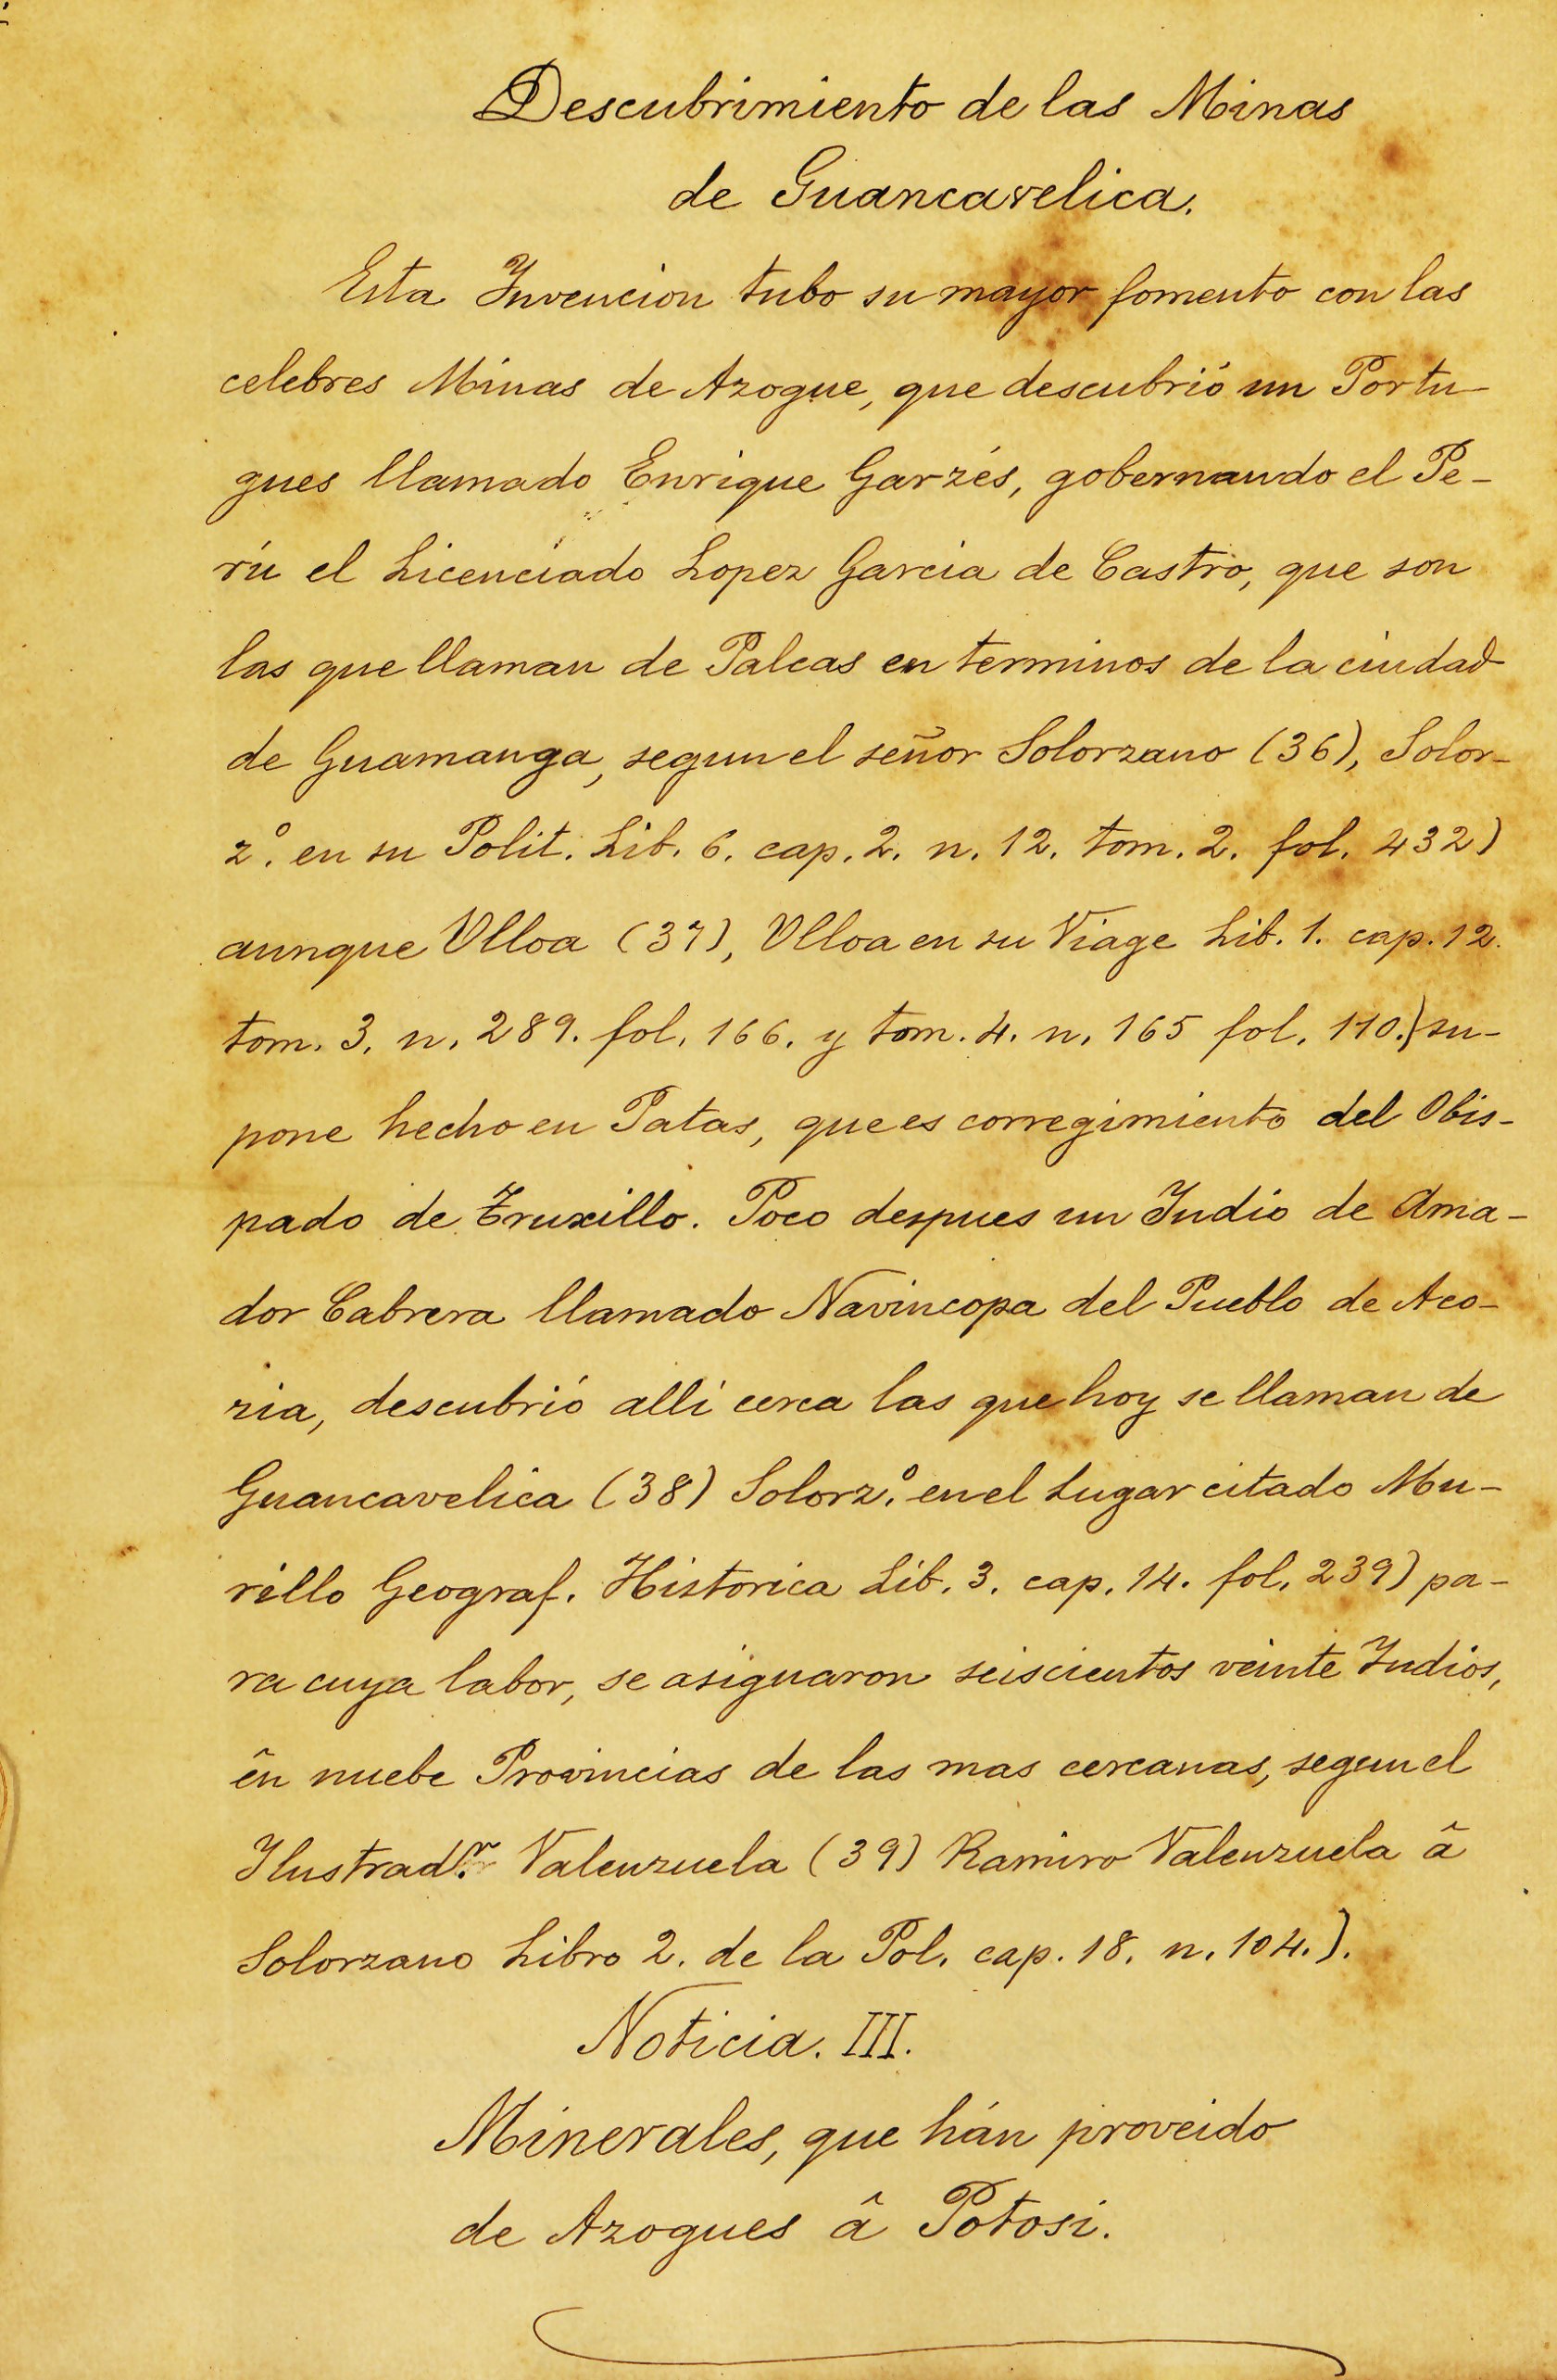 Descubrimiento de las Minas
de Guancavelica.
Esta Invencion tubo su mayor fomento con las
celebres Minas de Azogue, que descubrió un Portu-
gues llamado Enrique Garzés, gobernando el Pe-
rú el Licenciado Lopez Garcia de Castro, que son
las que llaman de Palcas en terminos de la ciudad
de Guamanga, segun el señor Solorzano (36), Solor-
z.º en su Polit. Lib. 6. cap. 2. n. 12. tom. 2. fol. 432)
aunque Ulloa (37), Ulloa en su Viage Lib. 1. cap. 12.
tom. 3. n. 289. fol. 166. y tom. 4. n. 165 fol. 110.) su-
pone hecho en Patas, que es corregimiento del Obis-
pado de Truxillo. Poco despues un Indio de Ama-
dor Cabrera llamado Navincopa del Pueblo de Aco-
ria, descubrió alli cerca las que hoy se llaman de
Guancavelica (38) Solorz.º en el Lugar citado Mu-
rillo Geograf. Historica Lib. 3. cap. 14. fol. 239) pa-
ra cuya labor, se asignaron seiscientos veinte Indios,
ên nuebe Provincias de las mas cercanas, segun el
Ilustrad.r Valenzuela (39) Ramiro Valenzuela â
Solorzano Libro 2. de la Pol. cap. 18. n. 104.).
Noticia. III.
Minerales, que hán proveido
de Azogues â Potosi.